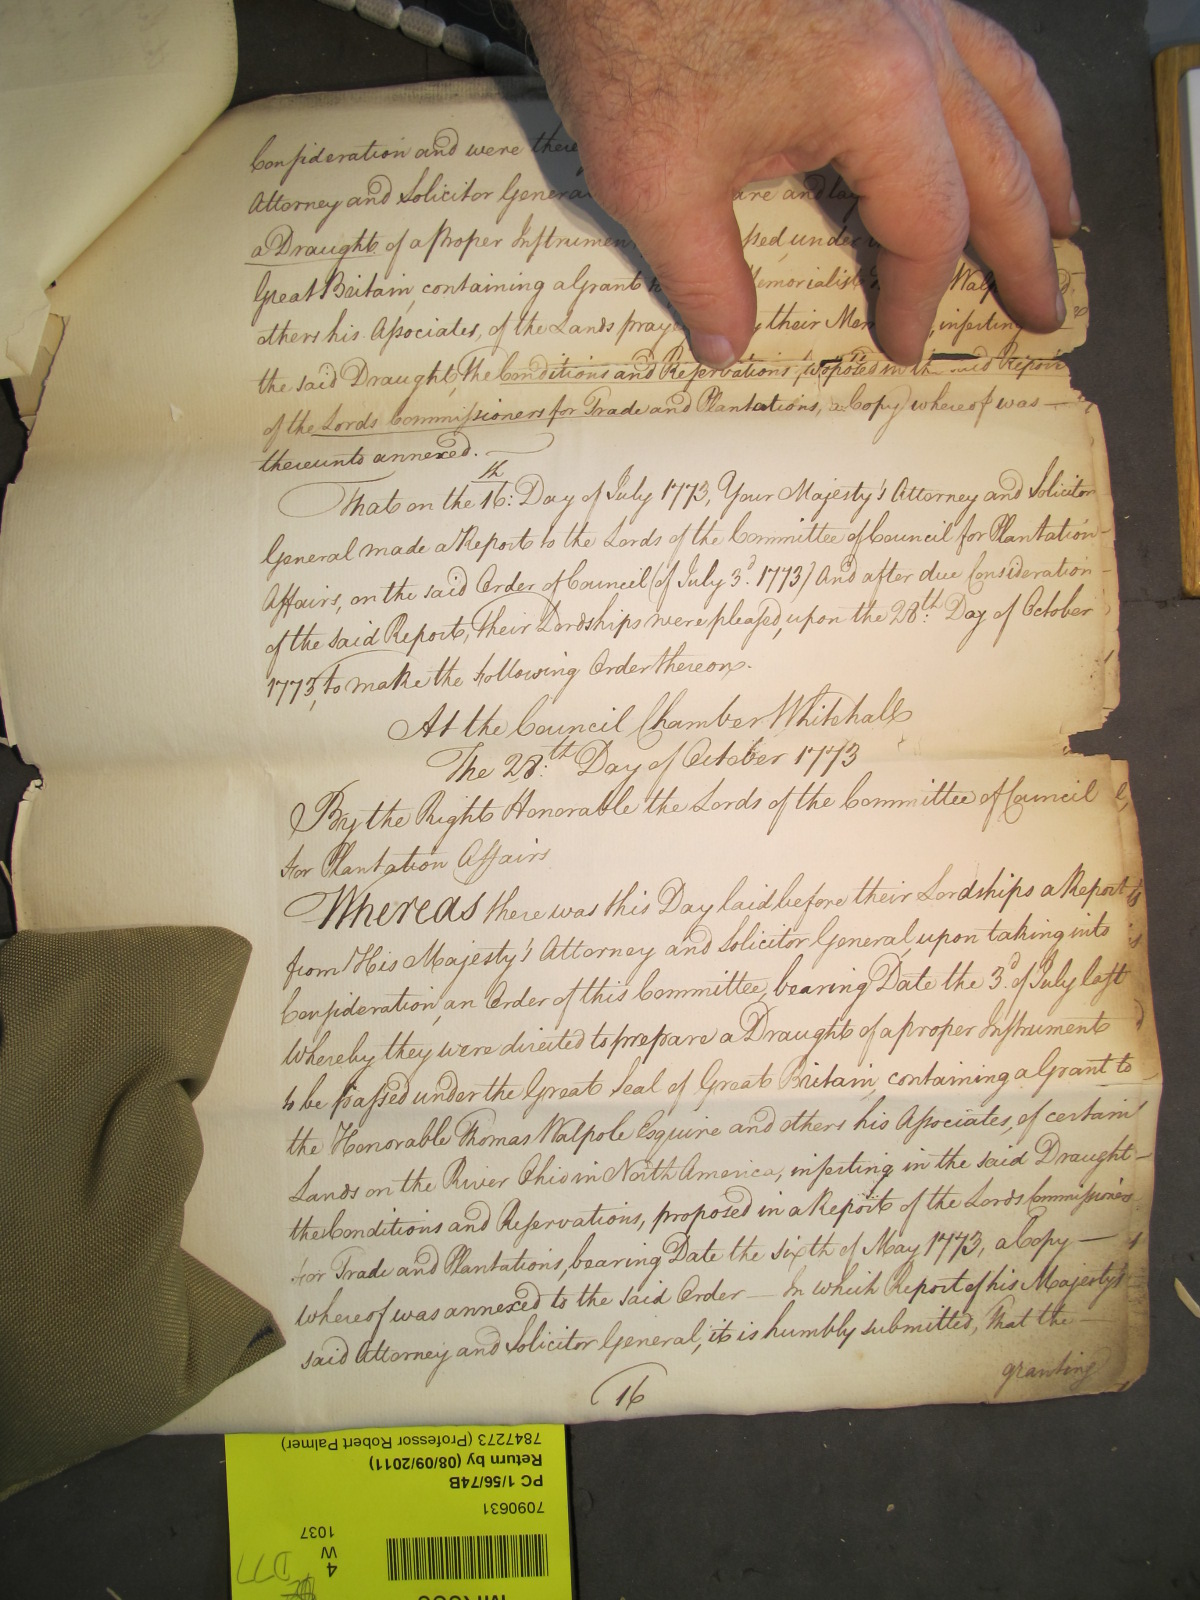 Consideration and were there
Attorney and Solicitor General are and lay
a Draught of a proper Instrument ssed, under
Great Britain, containing a Grant to Memorialist Walp
others his Associates, of the Lands pray their Mem , inserting
the said Draught, the Conditions and Reservations, proposed in the said Report
of the Lords Commissioners for Trade and Plantations, a Copy whereof was —
thereunto annexed.
That on the 16:th Day of July 1773, Your Majesty's Attorney and Solicitor
General made a Report to the Lords of the Committee of Council for Plantation
Affairs, on the said Order of Council (of July 3d. 1773) And after due Consideration
of the said Report, Their Lordships were pleased, upon the 28th: Day of October
1773, to make the following Order thereon.
At the Council Chamber Whitehall
The 28:th Day of October 1773
By the Right Honorable the Lords of the Committee of Council
for Plantation Affairs
Whereas there was this Day laid before their Lordships a Report
from His Majesty's Attorney and Solicitor General, upon taking into
Consideration, an Order of this Committee, bearing Date the 3d. of July last
Whereby they were directed to prepare a Draught of a proper Instrument
to be passed under the Great Seal of Great Britain, containing a Grant to
the Honorable Thomas Walpole Esquire and others his Associates, of certain
Lands on the River Ohio in North America, inserting in the said Draught —
the Conditions and Reservations, proposed in a Report of the Lords Commissioners
for Trade and Plantations, bearing Date the sixth of May 1773, a Copy —
whereof was annexed to the said Order — In which Report of his Majesty's
said Attorney and Solicitor General, it is humbly submitted, That the —
granting
16
7847273 (Professor Robert Palmer)
Return by (08/09/2011)
PC 1/56/74B
7090631
1037
W
4
D77